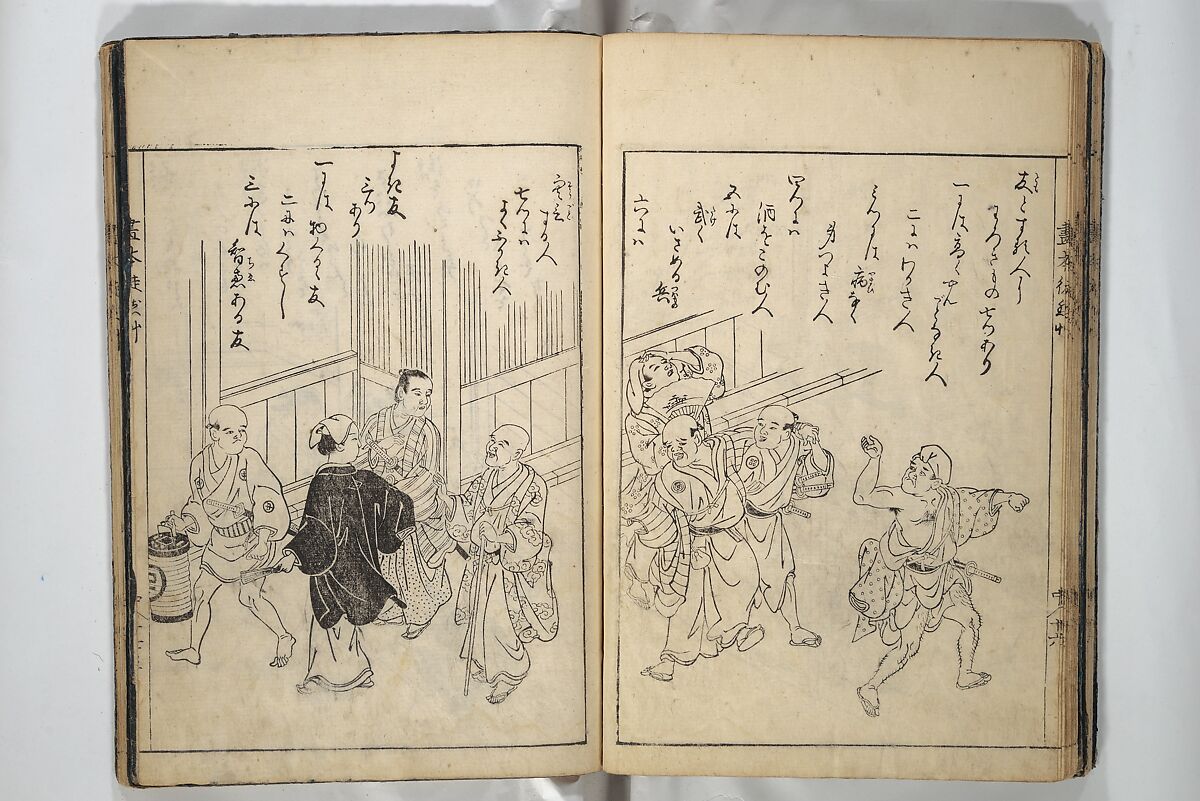 友とするに
わろきもの七つあり
一には高くやんことなき人
二にハわかき人
三つには病なく
身つよき人
四つにハ
酒をこのむ人
五には
武く
いさめる兵
六にハ
する人
七つにハ
よくふかき人
よき友
三つ
あり
一には物くるゝ友
二にハくすし
三には
智恵ある友
畫本徒然草
畫本徒然草